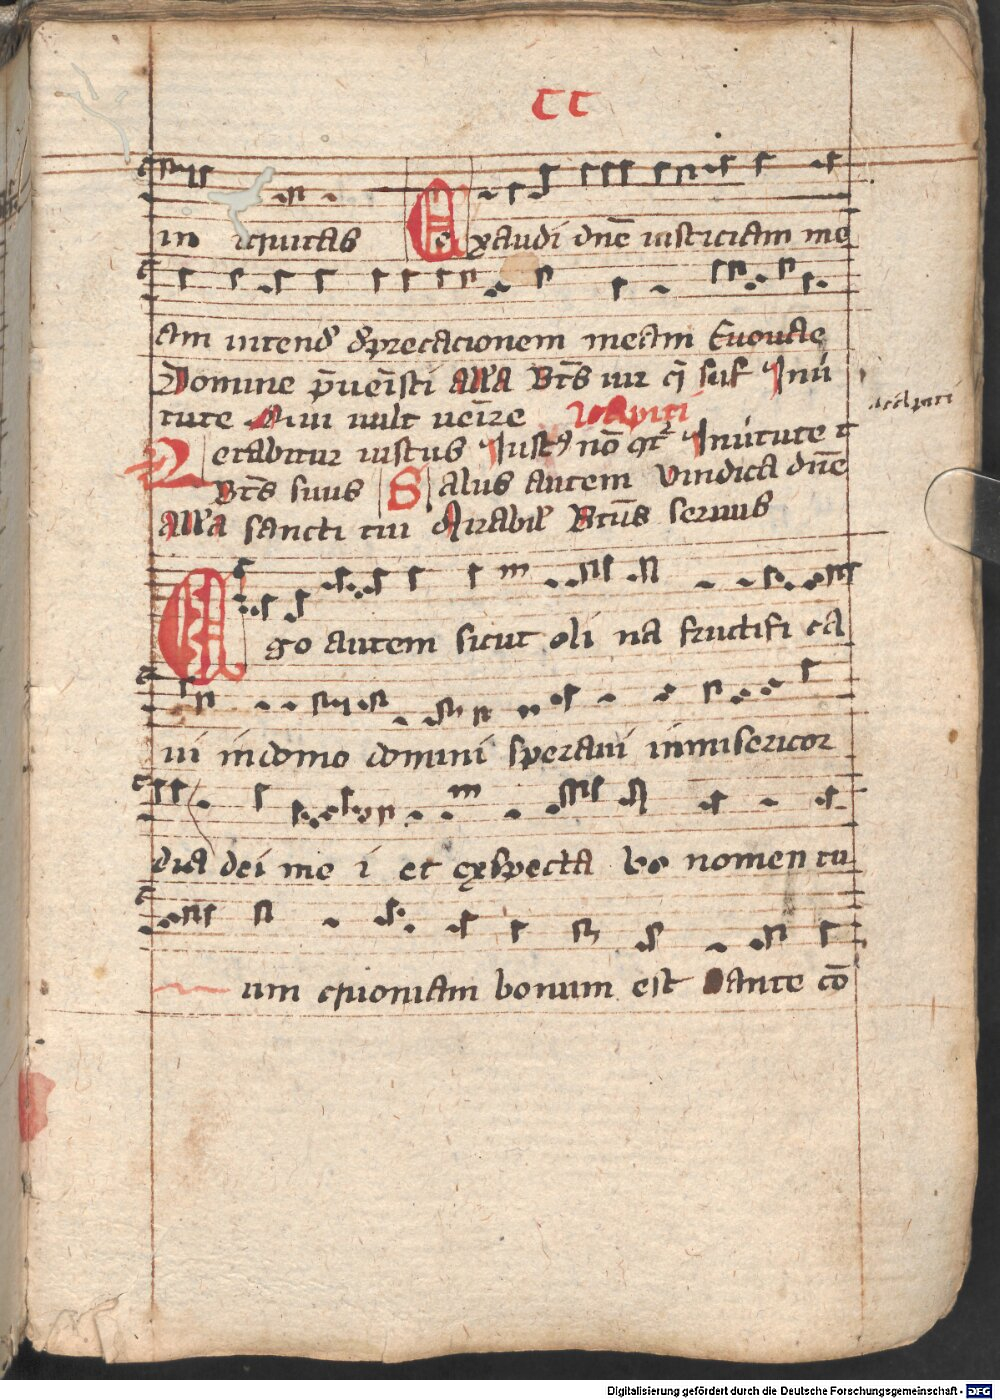 CC
in iquitas Exaudi dn̄e iusticiam me
am intend deprecacionem meam Euouae
Domine p̄uenisti alla Bt̄s uir q̄ suf Inui
tute Qui uult uenire
Letabitur iustus Iust9 nō Inuitute
Bt̄s seruus Salus autem Vindica dn̄e
alla sancti tui Mirabil Bt̄us seruus
Ego autem sicut oli na fructifi ca
ui in domo domini speraui in misericor
dia dei me i et exspecta bo nomen tu
um quoniam bonum est ante cō
Digitalisierung gefördert durch die Deutsche Forschungsgemeinschaft - DFG